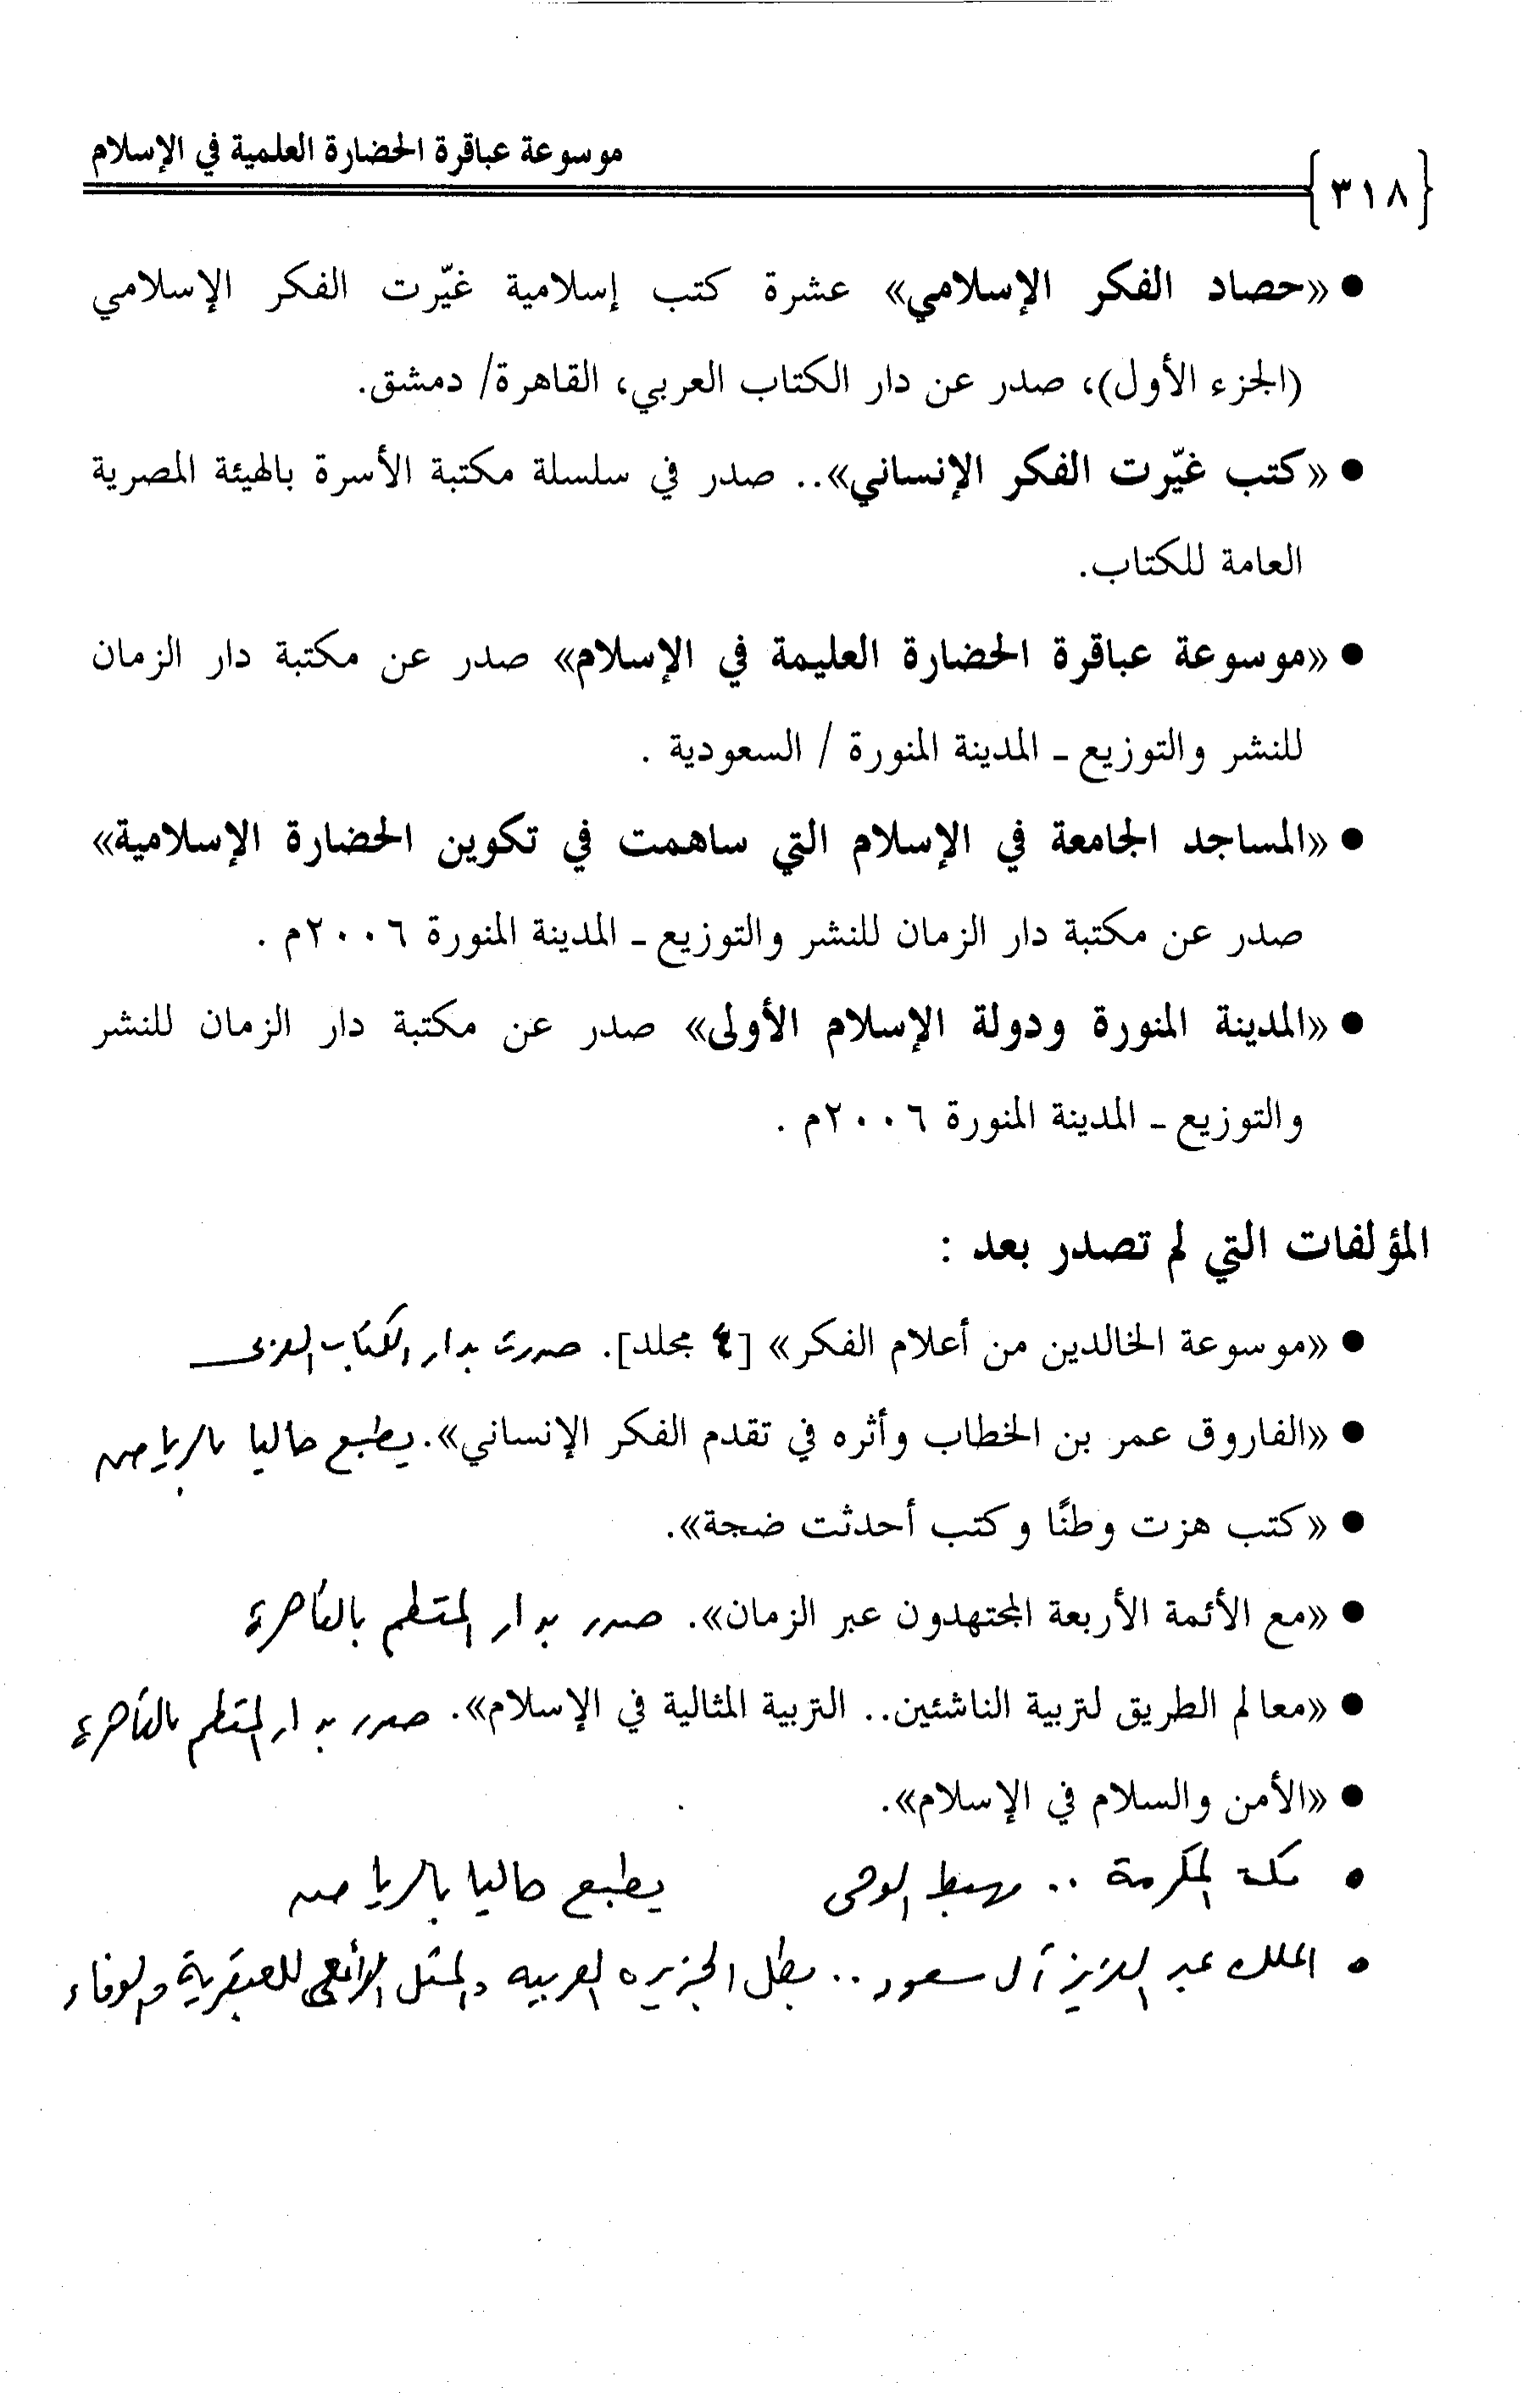 موسوعة عباقرة الحضارة العلمية في الإسلام
{٣١٨}
● «حصاد الفكر الإسلامي» عشرة كتب إسلامية غيّرت الفكر الإسلامي
(الجزء الأول)، صدر عن دار الكتاب العربي، القاهرة/ دمشق.
● «كتب غيّرت الفكر الإنساني».. صدر في سلسلة مكتبة الأسرة بالهيئة المصرية
العامة للكتاب.
● «موسوعة عباقرة الحضارة العليمة في الإسلام» صدر عن مكتبة دار الزمان
للنشر والتوزيع ـ المدينة المنورة / السعودية .
● «المساجد الجامعة في الإسلام التي ساهمت في تكوين الحضارة الإسلامية»
صدر عن مكتبة دار الزمان للنشر والتوزيع ـ المدينة المنورة ٢٠٠٦م .
● «المدينة المنورة ودولة الإسلام الأولى» صدر عن مكتبة دار الزمان للنشر
والتوزيع ـ المدينة المنورة ٢٠٠٦م .
المؤلفات التي لم تصدر بعد :
● «موسوعة الخالدين من أعلام الفكر» [٤ مجلد]. صدرت بدار الكتاب العربى
● «الفاروق عمر بن الخطاب وأثره في تقدم الفكر الإنساني». يطبع حاليا بالرياض
● «كتب هزت وطنًا وكتب أحدثت ضجة».
● «مع الأئمة الأربعة المجتهدون عبر الزمان». صدر بدار المقطم بالقاهرة
● «معالم الطريق لتربية الناشئين.. التربية المثالية في الإسلام». صدر بدار المقطم بالقاهرة
● «الأمن والسلام في الإسلام».
● مكة المكرمة .. مهبط الوحى يطبع حاليا بالرياض
● الملك عبد العزيز آل سعود .. بطل الجزيره العربيه والمثل للعبقرية والوفاء